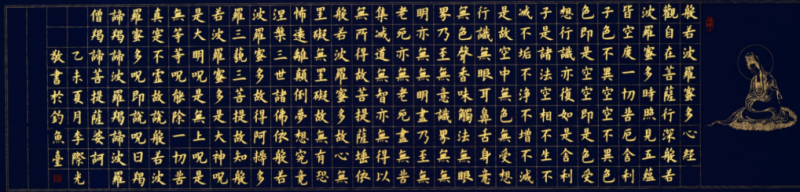 般若波羅蜜多心經
觀自在菩薩行深般若
波羅蜜多時照見五蘊
皆空度一切苦厄舍利
子色不異空空不異色
色即是空空即是色受
想行識亦復如是舍利
子是諸法空相不生不
滅不垢不淨不增不減
是故空中無色無受想
行識無眼耳鼻舌身意
無色聲香味觸法無眼
界乃至無意識界無無
明亦無無明盡乃至無
老死亦無老死盡無苦
集滅道無智亦無得以
無所得故菩提薩埵依
般若波羅蜜多故心無
罣礙無罣礙故無有恐
怖遠離顛倒夢想究竟
涅槃三世諸佛依般若
波羅蜜多故得阿耨多
羅三藐三菩提故知般
若波羅蜜多是大神呪
是大明呪是無上呪是
無等等呪能除一切苦
真實不虛故說般若波
羅蜜多呪即說呪曰羯
諦羯諦波羅羯諦波羅
僧羯諦菩提薩婆訶
乙未夏月李際光
敬書於釣魚臺